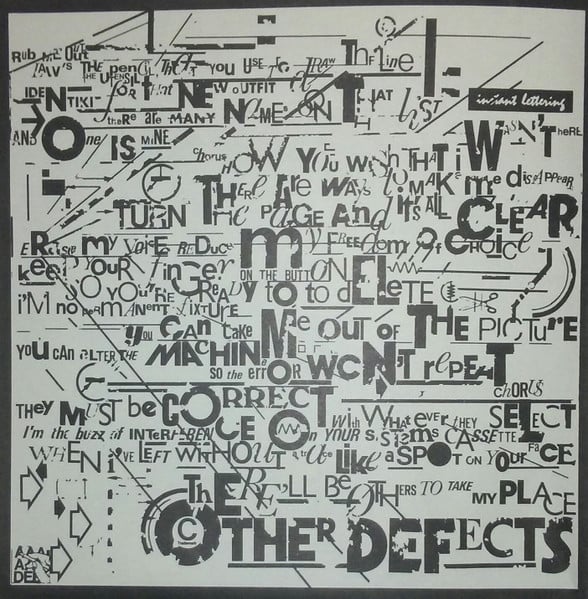 RUb Me OUt
IAW'S THE penCIL THAT YOU USE TO dRAW ThE line
THE UTENSIL
IDENTIKIT for that NEW OUTFIT
instant lettering
theRe aRe MANY NAMES ON THAT lIST
AND One IS MINE WASN'T heRE
chorus HOW YOU WISh THAT i
THeRe ARe WAYS TO MAKe me dISAPPEAR
TURN The PAGE ANd It'S ALL CLEAR
ERase my VoICE REDUce my FREEdom Of CHOICe
keeP YOUR finGer ON THE BUTtON
SO YOU'RE GREADY to to dELETE
i'M no peRMANENT fIXTURE
you CAn take Me OUT OF THE PICTURE
yoU CAN ALTER THE MACHINe
SO the errOR WON'T rEPEAT
chORUS
THEY MUST be CORRECT
With WHAT ever tHEY SELECT
I'm the buzz of INTERFERENCE On YOUR SyStEmS CASSETTE
WHEN i've LEFT WITHOUT a trace LIKe a SPOT ON YOUR FACE
ThERE'LL BE OTHERS TO TAKE MY PLACE
© OTHER DEFECTS
Trademark